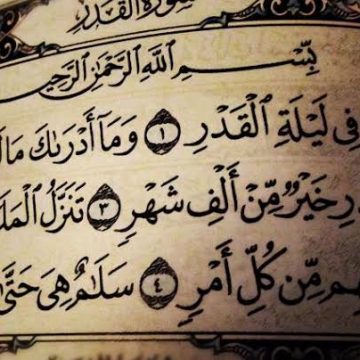 سُورَةُ الْقَدْرِ
بِسْمِ اللَّهِ الرَّحْمَٰنِ الرَّحِيمِ
فِي لَيْلَةِ الْقَدْرِ ١ وَمَا أَدْرَىٰكَ مَا لَ
رِ خَيْرٌ مِّنْ أَلْفِ شَهْرٍ ٣ تَنَزَّلُ الْمَلَ
هِم مِّن كُلِّ أَمْرٍ ٤ سَلَامٌ هِيَ حَتَّىٰ